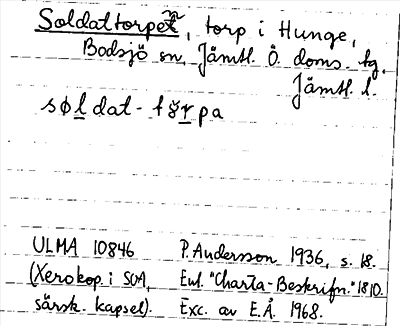 Soldattorpet, torp i Hunge,
Bodsjö sn, Jämtl. Ö. doms. tg,
Jämtl. l.
søldat-tɞrpa
ULMA 10846 P. Andersson 1936, s. 18.
(Xerokop. i SOA, Enl. "Charta-Beskrifn." 1810.
särsk. kapsel). Exc. av E.Å. 1968.